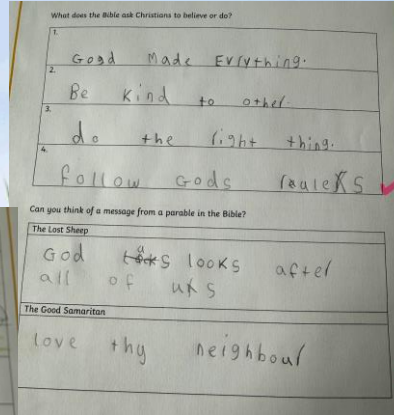 What does the Bible ask Christians to believe or do?
1.
Goad Made Evrything.
2.
Be kind to other.
3.
do the right thing.
4.
follow Gods rules
Can you think of a message from a parable in the Bible?
The Lost Sheep
God looks after
all of us
The Good Samaritan
love thy neighbour